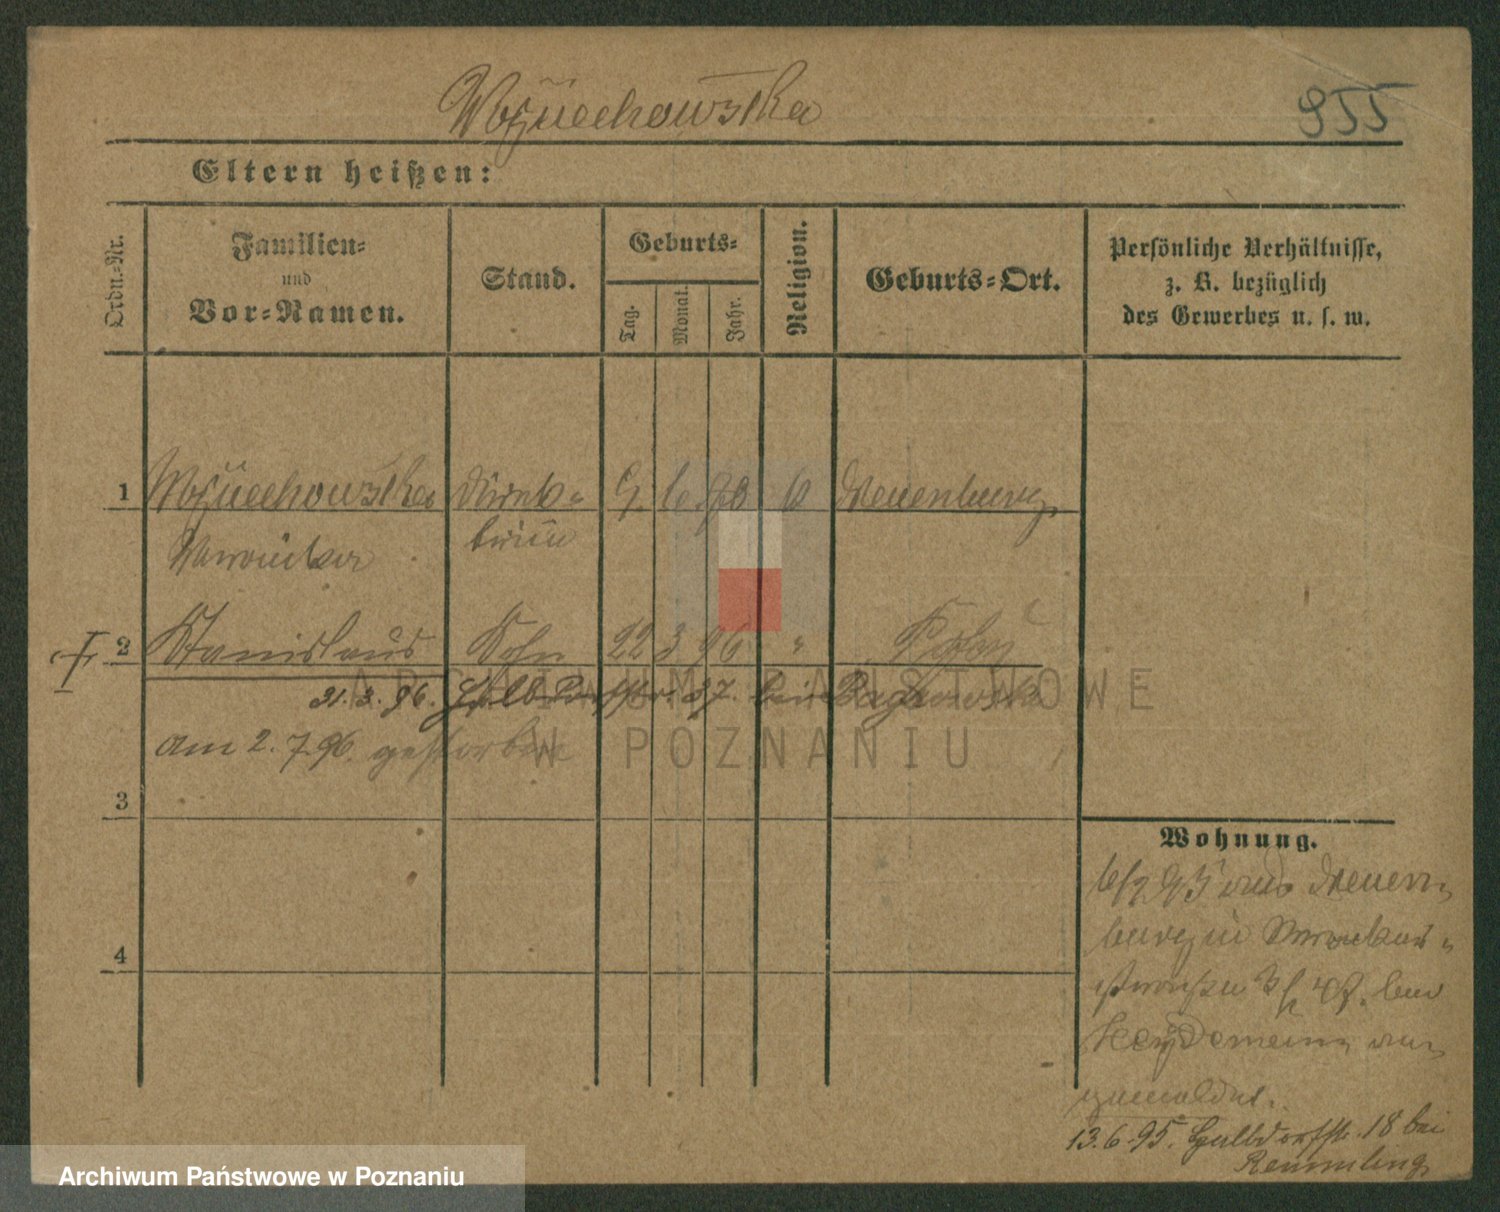 Wojciechowska
955
Eltern heißen:
Ordn.-Nr.
Familien-
und
Vor-Namen.
Stand.
Geburts-
Tag.
Monat.
Jahr.
Religion.
Geburts-Ort.
Persönliche Verhältnisse,
z. B. bezüglich
des Gewerbes u. s. w.
1
Wojciechowska
9. 6. 70
Neuenburg
2
Stanislaus
Sohn
22 3 96
"
Posen
31.3.96. 37. bei
am 2.7.96. gestorben
3
4
Wohnung.
6/2 95 aus Neuen-
burg in
straße 3/4 bei
an-
gemeldet.
13.6.95. Halbdorfstr. 18 bei
Remmling
ARCHIWUM PAŃSTWOWE
W POZNANIU
Archiwum Państwowe w Poznaniu